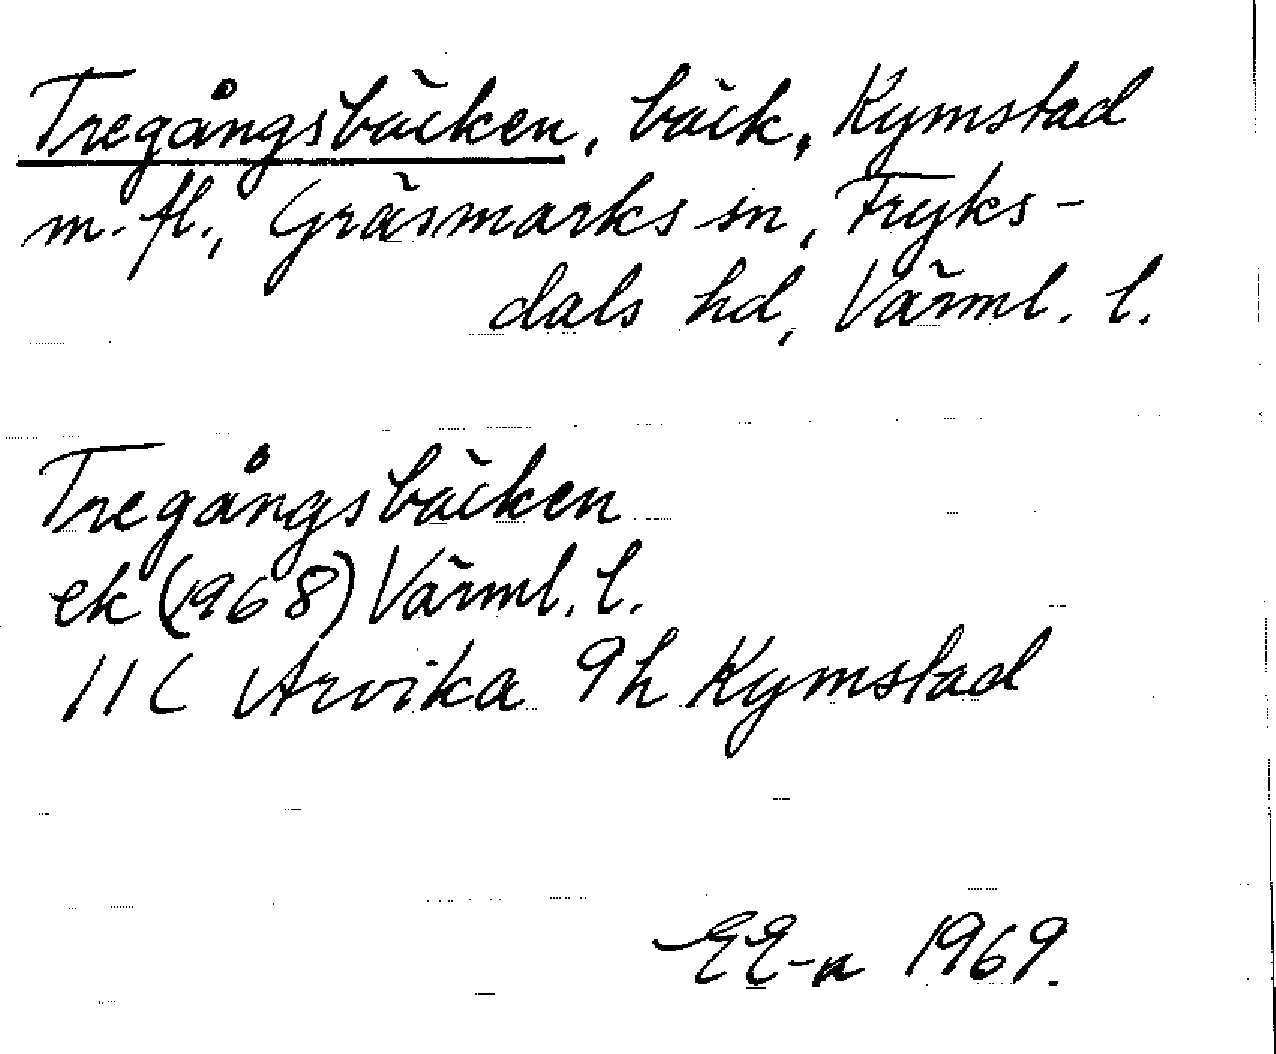 Tregångsbäcken, bäck, Kymstad
m. fl., Gräsmarks sn, Fryks-
dals hd, Värml. l.
Tregångsbäcken
ek (1968) Värml. l.
11C Arvika 9h Kymstad
EE-n 1969.